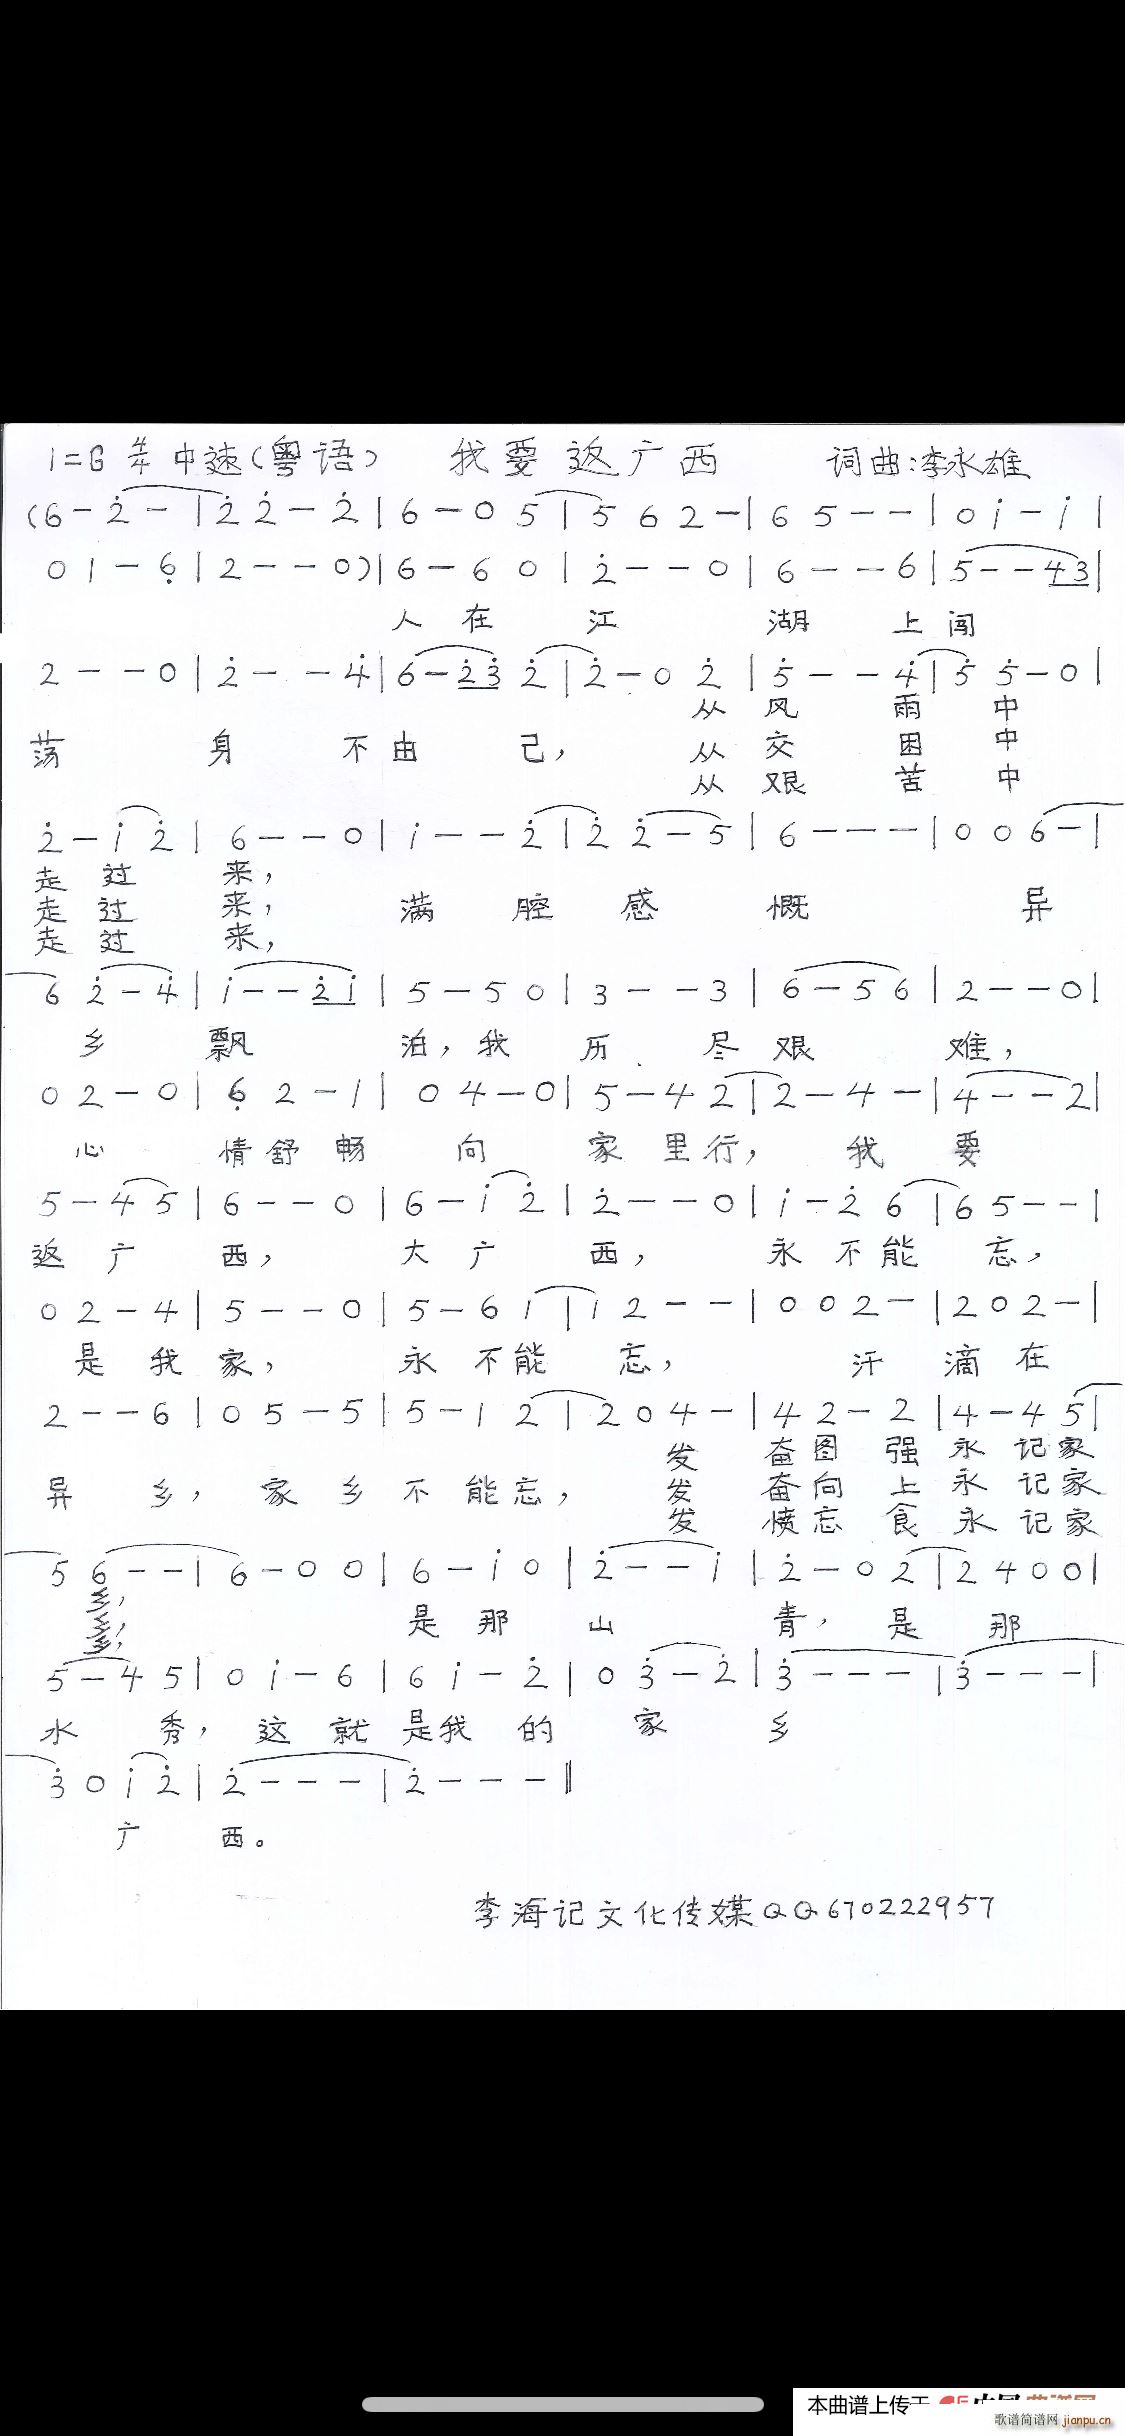 1=G 4/4 中速(粤语) 我要返广西 词曲:李永雄
(6 - 2̇ - | 2̇ 2̇ - 2̇ | 6 - 0 5 | 5 6 2 - | 6 5 - - | 0 i - i |
0 1 - 6̣ | 2 - - 0) | 6 - 6 0 | 2̇ - - 0 | 6 - - 6 | 5 - - 4 3 |
人 在 江 湖 上 闯
2 - - 0 | 2̇ - - 4̇ | 6 - 2̇ 3̇ 2̇ | 2̇ - 0 2̇ | 5̇ - - 4̇ | 5̇ 5̇ - 0 |
从 风 雨 中
荡 身 不 由 己， 从 交 困 中
从 艰 苦 中
2̇ - i 2̇ | 6 - - 0 | i - - 2̇ | 2̇ 2̇ - 5 | 6 - - - | 0 0 6 - |
走 过 来，
走 过 来， 满 腔 感 慨 异
走 过 来，
6 2̇ - 4̇ | i - - 2̇ i | 5 - 5 0 | 3 - - 3 | 6 - 5 6 | 2 - - 0 |
乡 飘 泊，我 历 尽 艰 难，
0 2 - 0 | 6̣ 2 - 1 | 0 4 - 0 | 5 - 4 2 | 2 - 4 - | 4 - - 2 |
心 情 舒 畅 向 家 里 行， 我 要
5 - 4 5 | 6 - - 0 | 6 - i 2̇ | 2̇ - - 0 | i - 2̇ 6 | 6 5 - - |
返 广 西， 大 广 西， 永 不 能 忘，
0 2 - 4 | 5 - - 0 | 5 - 6 1 | 1 2 - - | 0 0 2 - | 2 0 2 - |
是 我 家， 永 不 能 忘， 汗 滴 在
2 - - 6 | 0 5 - 5 | 5 - 1 2 | 2 0 4 - | 4 2 - 2 | 4 - 4 5 |
发 奋 图 强 永 记 家
异 乡， 家 乡 不 能 忘， 发 奋 向 上 永 记 家
发 愤 忘 食 永 记 家
5 6 - - | 6 - 0 0 | 6 - i 0 | 2̇ - - i | 2̇ - 0 2 | 2 4 0 0 |
乡，
乡， 是 那 山 青， 是 那
乡，
5 - 4 5 | 0 i - 6 | 6 i - 2̇ | 0 3̇ - 2̇ | 3̇ - - - | 3̇ - - - |
水 秀， 这 就 是 我 的 家 乡
3̇ 0 i 2̇ | 2̇ - - - | 2̇ - - - ‖
广 西。
李海记文化传媒QQ670222957
本曲谱上传于
歌谱简谱网 jianpu.cn